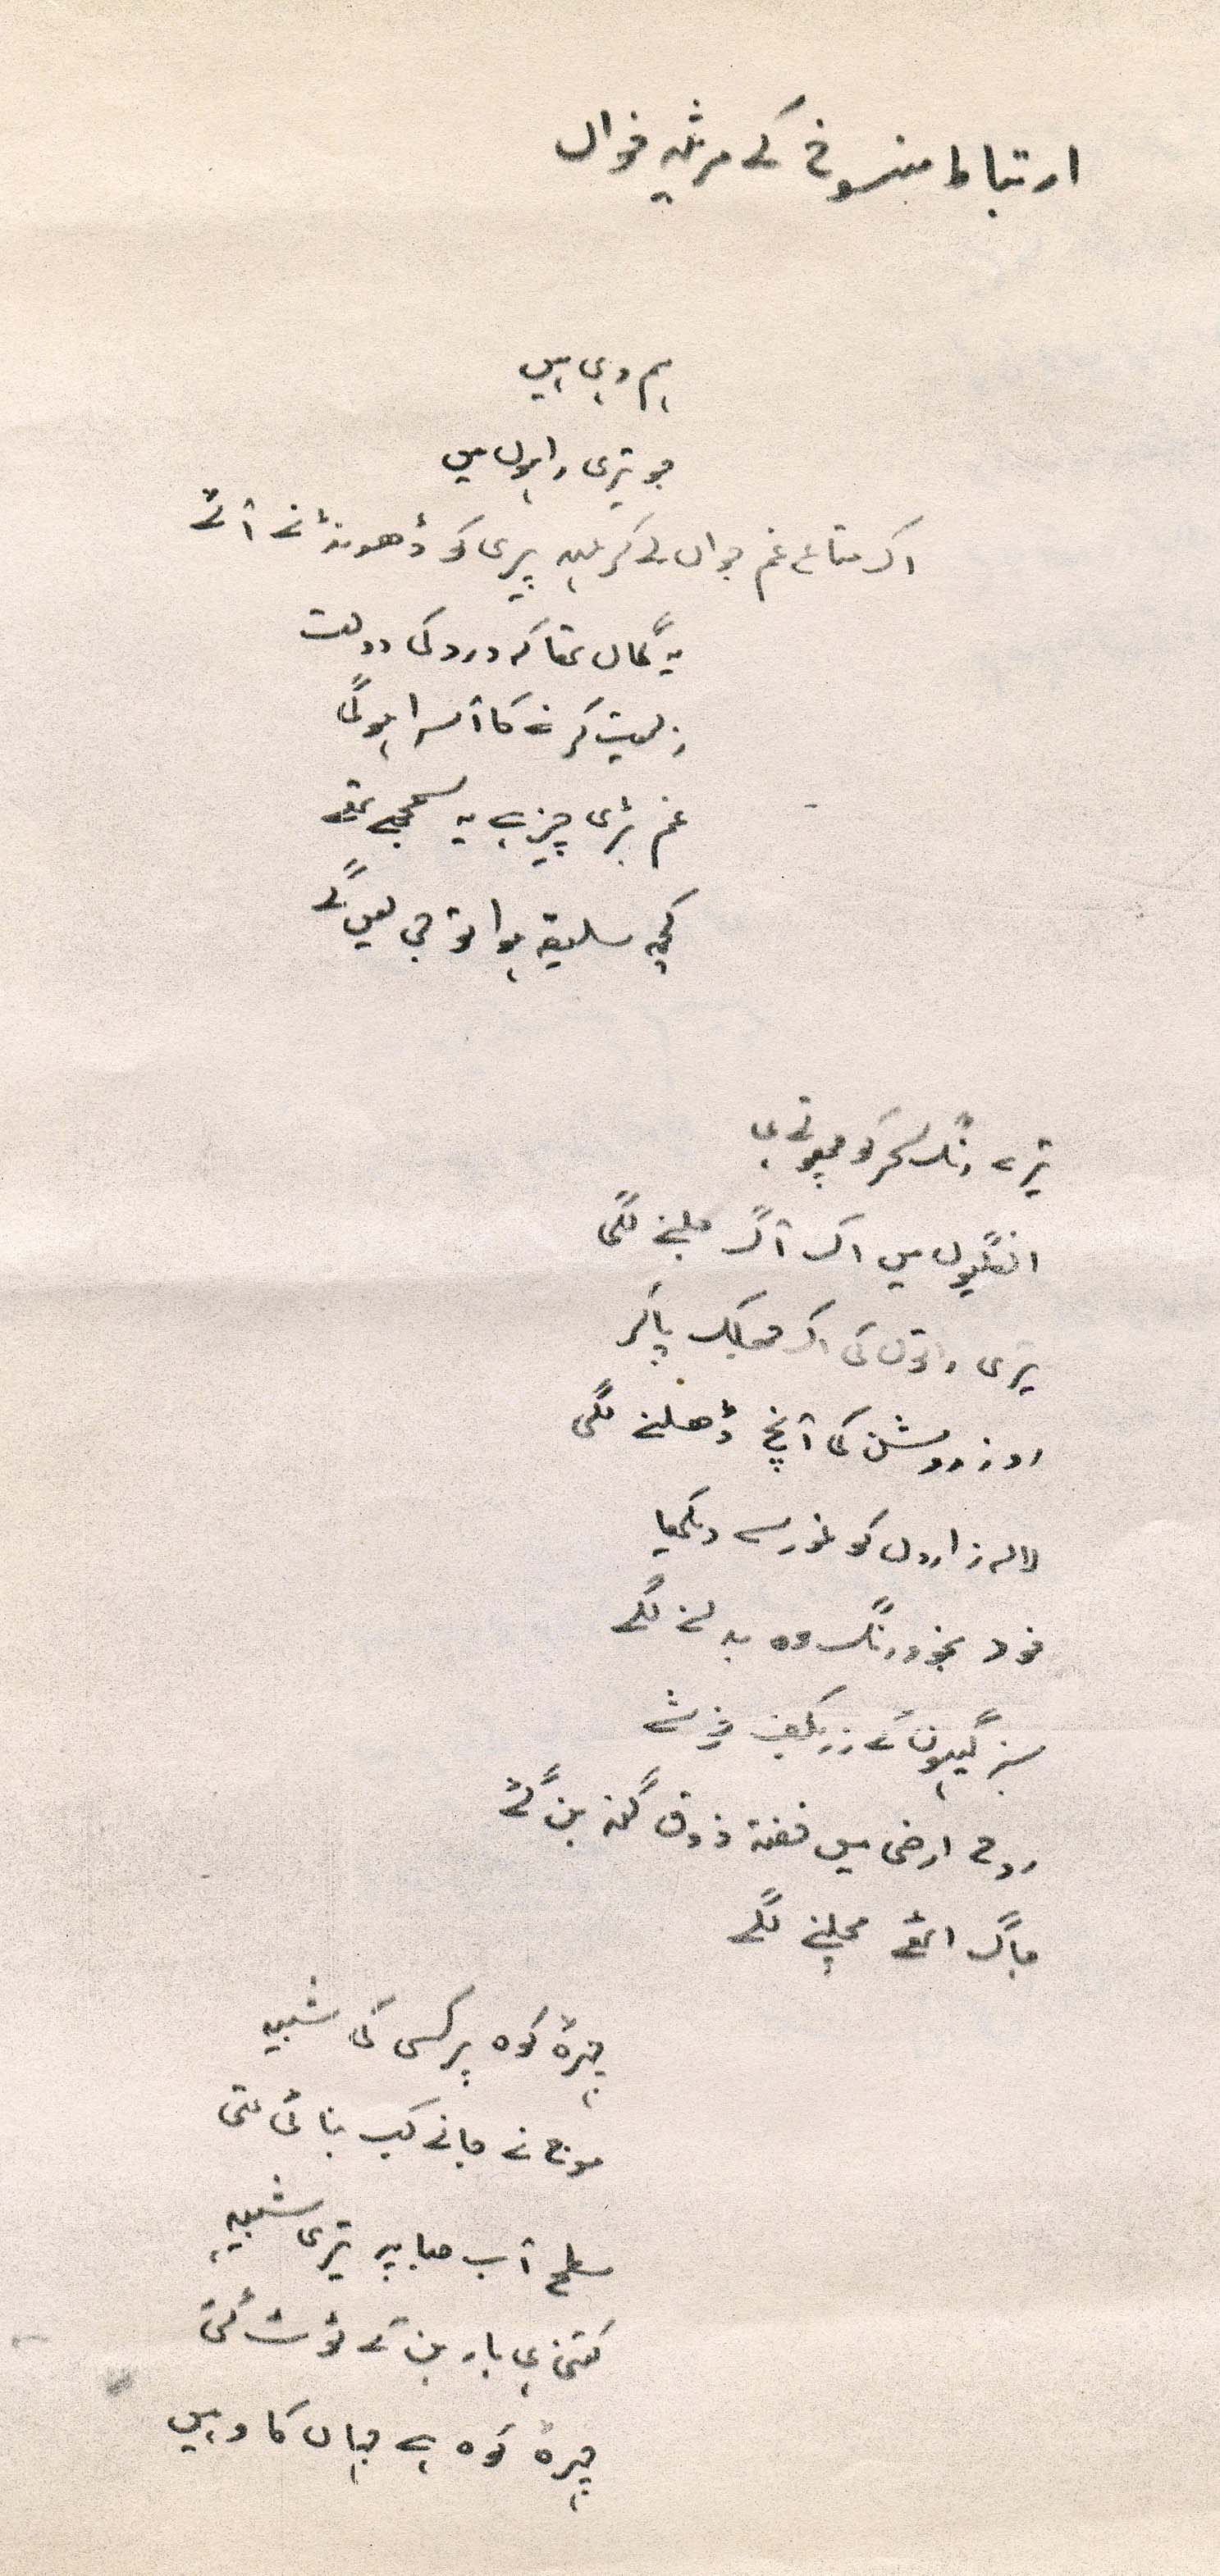 ارتباط منسوخ کے مرثیہ خواں
ہم وہی ہیں
جو تیری راہوں میں
اک متاع غم جواں لے کر عہد پیری کو ڈھونڈنے آئے
یہ گماں تھا کہ درد کی دولت
زیست کرنے کا آسرا ہوگی
غم بڑی چیز ہے یہ سمجھے تھے
کچھ سلیقہ ہوا تو جی لیں گے
تیرے رنگ سحر کو چھوتے ہی
انگلیوں میں اک آگ جلنے لگی
تیری راتوں کی اک جھلک پا کر
روز روشن کی آنچ ڈھلنے لگی
لالہ زاروں کو غور سے دیکھا
خود بخود رنگ وہ بدلنے لگے
سبز گیہوں کے زر بکف خوشے
روح ارضی میں خفتہ ذوق گنہ بن گئے
جاگ اٹھے مچلنے لگے
چہرۂ کوہ پر کسی کی شبیہ
موج نے جانے کب بنائی تھی
سطح آب صبا پہ تیری شبیہہ
کتنی ہی بار بن کے ٹوٹ گئی
چہرۂ کوہ ہے جہاں کا وہیں